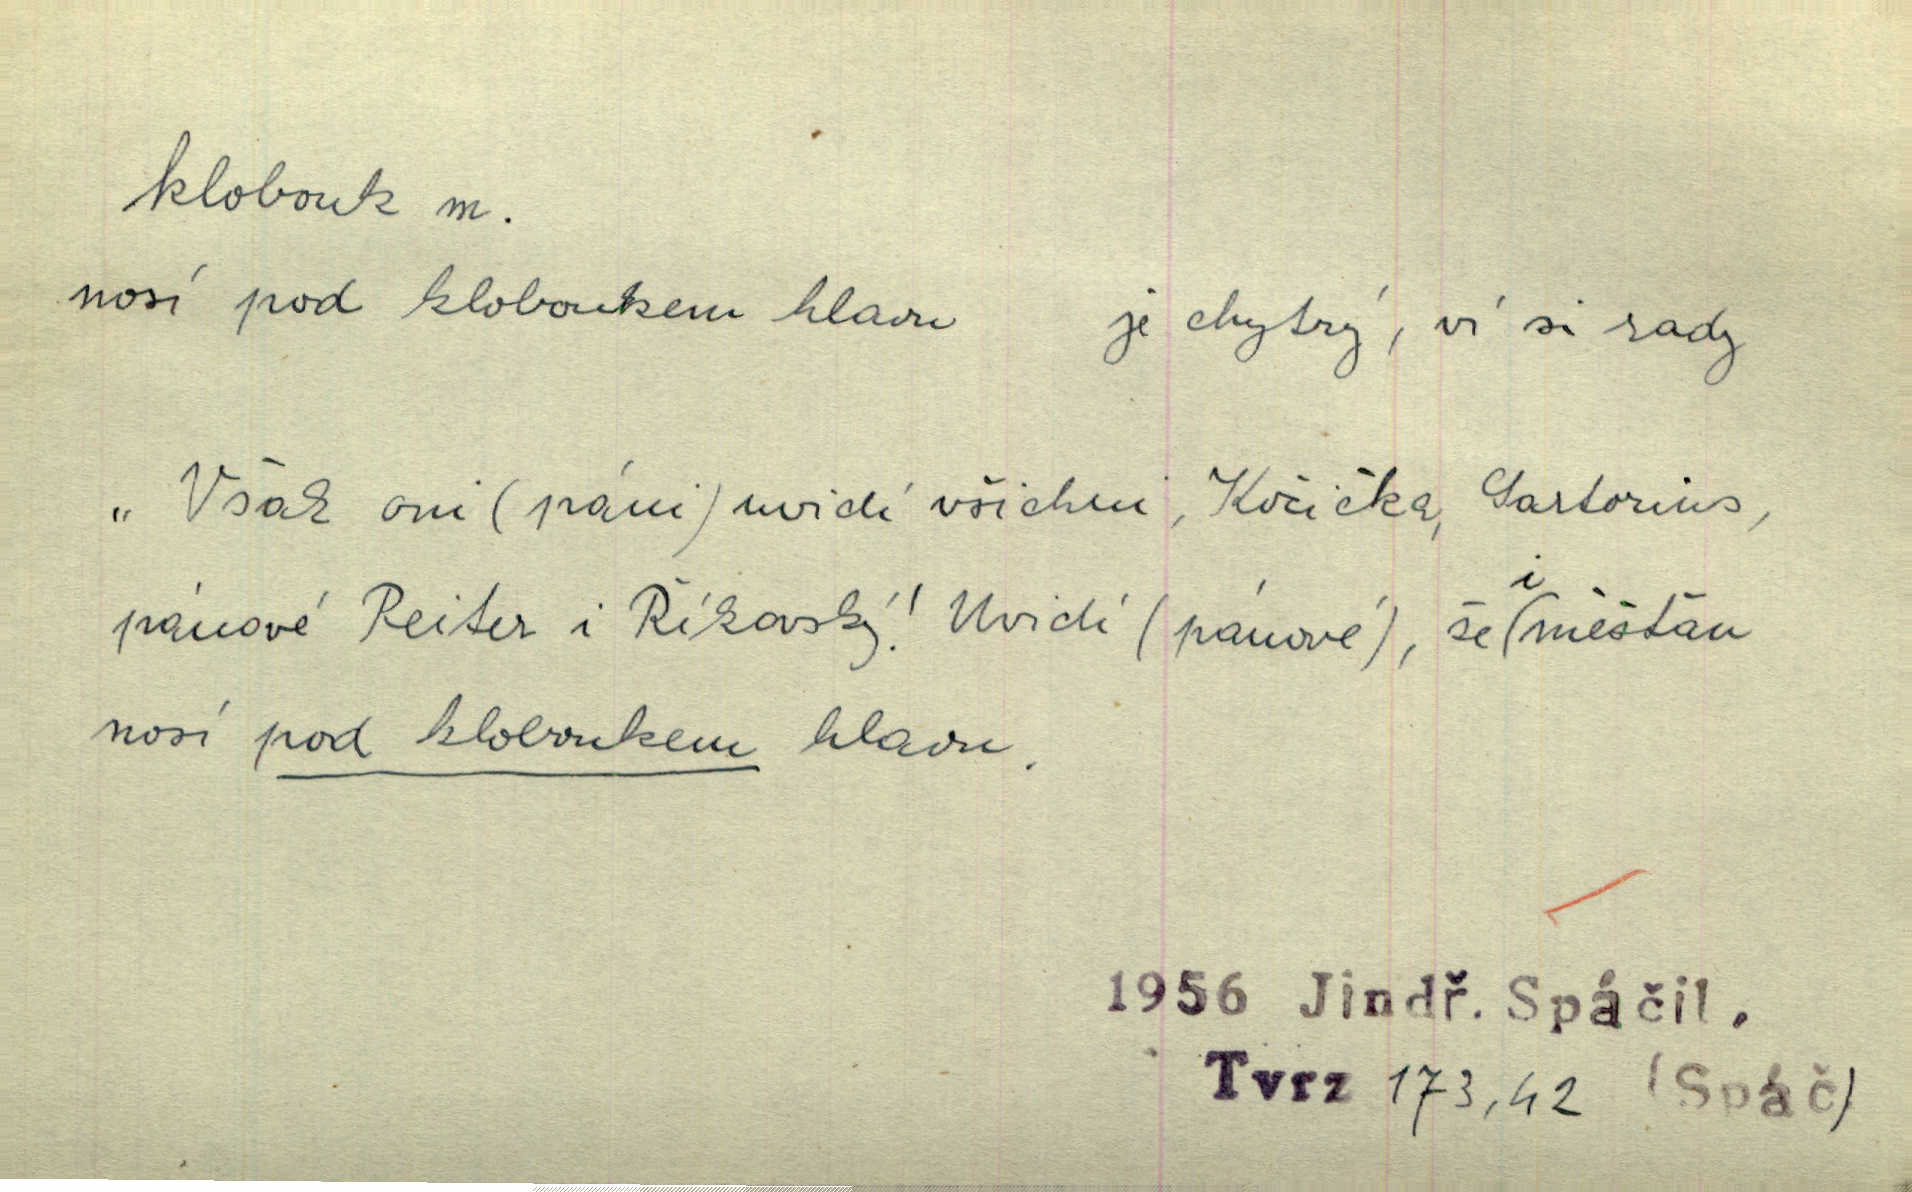 klobouk m.
nosí pod kloboukem hlavu je chytrý, ví si rady
„Však oni (páni) uvidí všichni, Kočička, Sartorius,
pánové Reiter i Říkovský! Uvidí (pánové), že i měšťan
nosí pod kloboukem hlavu.
1956 Jindř. Spáčil.
Tvrz 173,42 (Spáč)